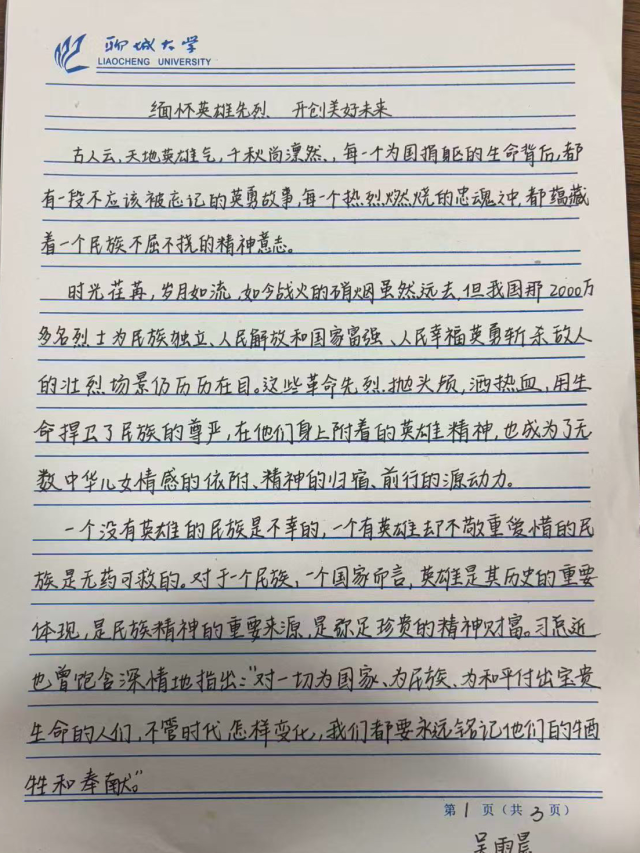 聊城大学
LIAOCHENG UNIVERSITY
缅怀英雄先烈 开创美好未来
古人云,天地英雄气,千秋尚凛然、,每一个为国捐躯的生命背后,都
有一段不应该被忘记的英勇故事,每一个热烈燃烧的忠魂之中,都蕴藏
着一个民族不屈不挠的精神意志。
时光荏苒,岁月如流,如今战火的硝烟虽然远去,但我国那2000万
多名烈士为民族独立、人民解放和国家富强、人民幸福英勇斩杀敌人
的壮烈场景仍历历在目。这些革命先烈.抛头颅,洒热血,用生
命捍卫了民族的尊严,在他们身上附着的英雄精神,也成为了无
数中华儿女情感的依附、精神的归宿、前行的源动力。
一个没有英雄的民族是不幸的,一个有英雄却不敬重爱惜的民
族是无药可救的。对于一个民族,一个国家而言,英雄是其历史的重要
体现,是民族精神的重要来源,是弥足珍贵的精神财富。习总近
也曾饱含深情地指出:"对一切为国家、为民族、为和平付出宝贵
生命的人们,不管时代怎样变化,我们都要永远铭记他们的牺
牲和奉献。"
第1页(共3页)
吴雨晨